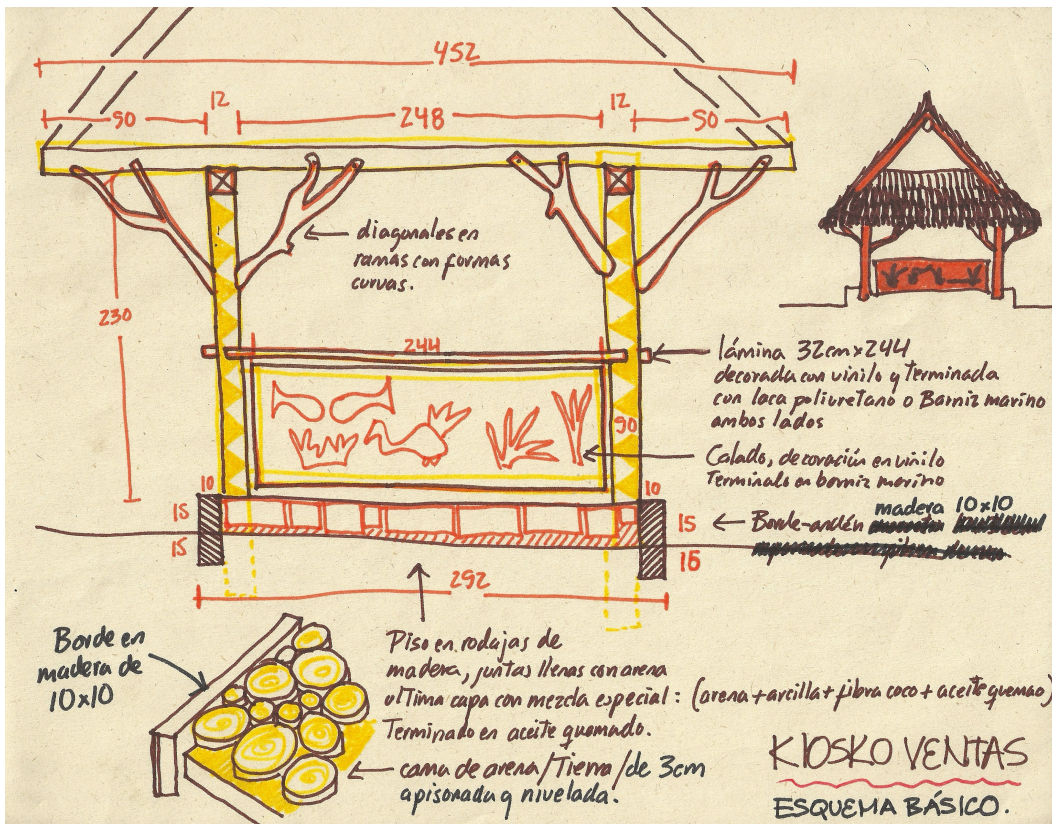 452
50
12
248
12
50
diagonales en
ramas con formas
curvas.
230
244
90
lámina 32cm x 244
decorada con vinilo y Terminada
con laca poliuretano o Barniz marino
ambos lados
Calado, decoración en vinilo
Terminalo en barniz marino
10
15
15
10
15
15
Borde-andén madera 10x10
292
Borde en
madera de
10x10
Piso en rodajas de
madera, juntas llenas con arena
ultima capa con mezcla especial: (arena + arcilla + fibra coco + aceite quemao)
Terminado en aceite quemado.
cama de arena/Tierra/de 3cm
apisonada y nivelada.
KIOSKO VENTAS
ESQUEMA BÁSICO.